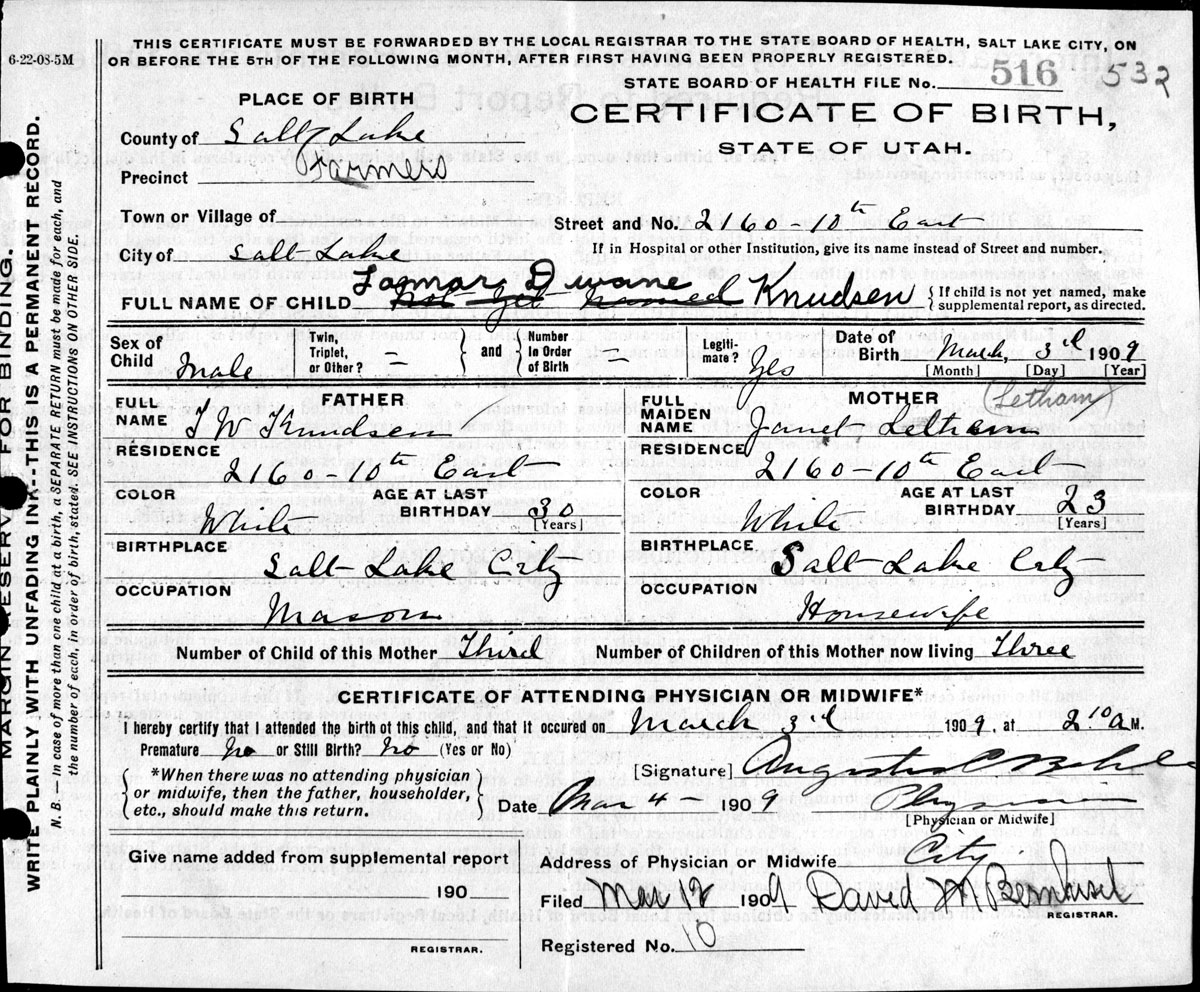 6-22-08-5M
THIS CERTIFICATE MUST BE FORWARDED BY THE LOCAL REGISTRAR TO THE STATE BOARD OF HEALTH, SALT LAKE CITY, ON
OR BEFORE THE 5TH OF THE FOLLOWING MONTH, AFTER FIRST HAVING BEEN PROPERLY REGISTERED.
STATE BOARD OF HEALTH FILE No. 516 532
PLACE OF BIRTH
CERTIFICATE OF BIRTH,
STATE OF UTAH.
County of Salt Lake
Precinct Farmers
Town or Village of
Street and No. 2160-10th East
If in Hospital or other Institution, give its name instead of Street and number.
City of Salt Lake
FULL NAME OF CHILD Not yet named Dwane Knudsen
{If child is not yet named, make
supplemental report, as directed.
Sex of Child Male
Twin, Triplet, or Other? – } and { Number In Order of Birth
Legiti-mate? Yes
Date of Birth March, 3rd 1909
[Month] [Day] [Year]
FATHER
FULL NAME T W Knudsen
RESIDENCE
2160-10th East
COLOR White
AGE AT LAST BIRTHDAY 30 [Years]
BIRTHPLACE
Salt Lake City
OCCUPATION
Mason
MOTHER (Letham)
FULL MAIDEN NAME Janet Letham
RESIDENCE
2160-10th East
COLOR White
AGE AT LAST BIRTHDAY 23 [Years]
BIRTHPLACE
Salt Lake City
OCCUPATION
Housewife
Number of Child of this Mother Third Number of Children of this Mother now living Three
CERTIFICATE OF ATTENDING PHYSICIAN OR MIDWIFE*
I hereby certify that I attended the birth of this child, and that it occured on March 3rd 1909, at 2 10 a M.
Premature No or Still Birth? No (Yes or No)
*When there was no attending physician
or midwife, then the father, householder,
etc., should make this return.
[Signature] Augustus C
Date Mar 4- 1909 Physician
[Physician or Midwife]
Give name added from supplemental report
190
REGISTRAR.
Address of Physician or Midwife City
Filed Mar 12 1909 David H.
REGISTRAR.
Registered No. 10
MARGIN RESERVE FOR BINDING.
WRITE PLAINLY WITH UNFADING INK--THIS IS A PERMANENT RECORD.
N. B.—In case of more than one child at a birth, a SEPARATE RETURN must be made for each, and
the number of each, in order of birth, stated. SEE INSTRUCTIONS ON OTHER SIDE.